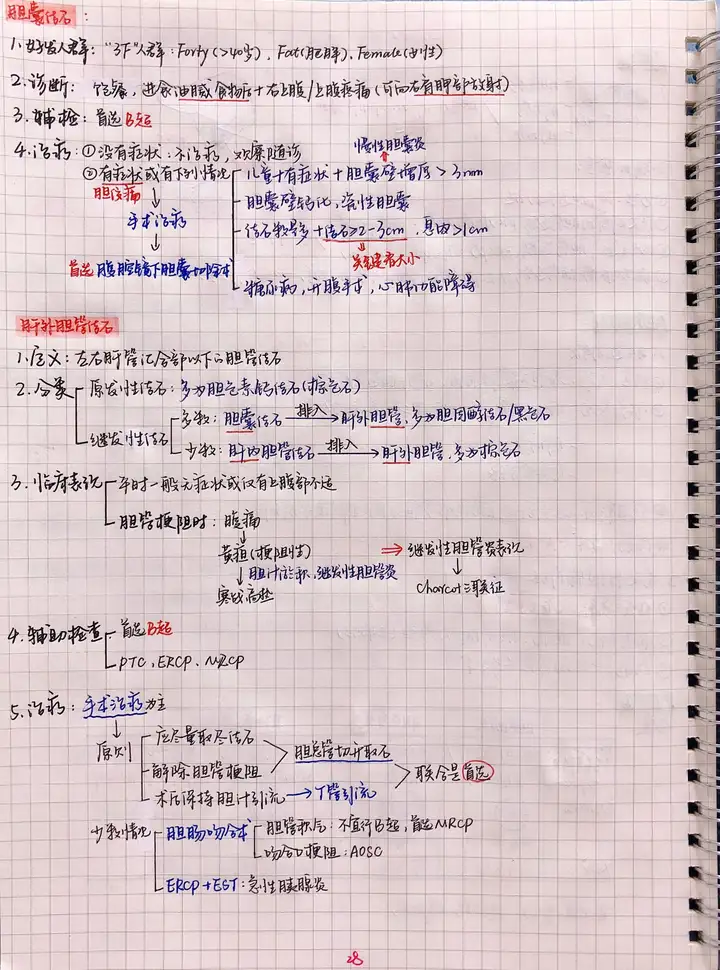 胆囊结石:
1.好发人群:"3F"人群:Forty(>40岁)、Fat(肥胖)、Female(女性)
2.诊断: 饱餐,进食油腻食物后+右上腹/上腹疼痛(可向右肩胛部放射)
3.辅检:首选B超
4.治疗:①没有症状:不治疗,观察随诊
②有症状或有下列情况
胆绞痛
手术治疗
首选腹腔镜下胆囊切除术
慢性胆囊炎
儿童+有症状+胆囊壁增厚>3mm
胆囊壁钙化,瓷性胆囊
结石数量多+结石≥2-3cm,息肉>1cm
关键是看大小
糖尿病,开腹手术,心肺功能障碍
肝外胆管结石
1.定义:左右肝管汇合部以下的胆管结石
2.分类
原发性结石:多为胆色素钙结石(棕色石)
继发性结石
多数:胆囊结石 排入 肝外胆管,多为胆固醇结石/黑色石
少数:肝内胆管结石 排入 肝外胆管,多为棕色石
3.临床表现
平时一般无症状或仅有上腹部不适
胆管梗阻时:腹痛
黄疸(梗阻性) ⇒ 继发性胆管炎表现
胆汁淤积,继发性胆管炎
寒战高热
Charcot三联征
4.辅助检查
首选B超
PTC、ERCP、MRCP
5.治疗:手术治疗为主
原则
应尽量取尽结石
解除胆管梗阻
胆总管切开取石
术后保持胆汁引流→T管引流
联合是首选
少数情况
胆肠吻合术
胆管积气:不宜行B超,首选MRCP
吻合口梗阻:AOSC
ERCP+EST:急性胰腺炎
28